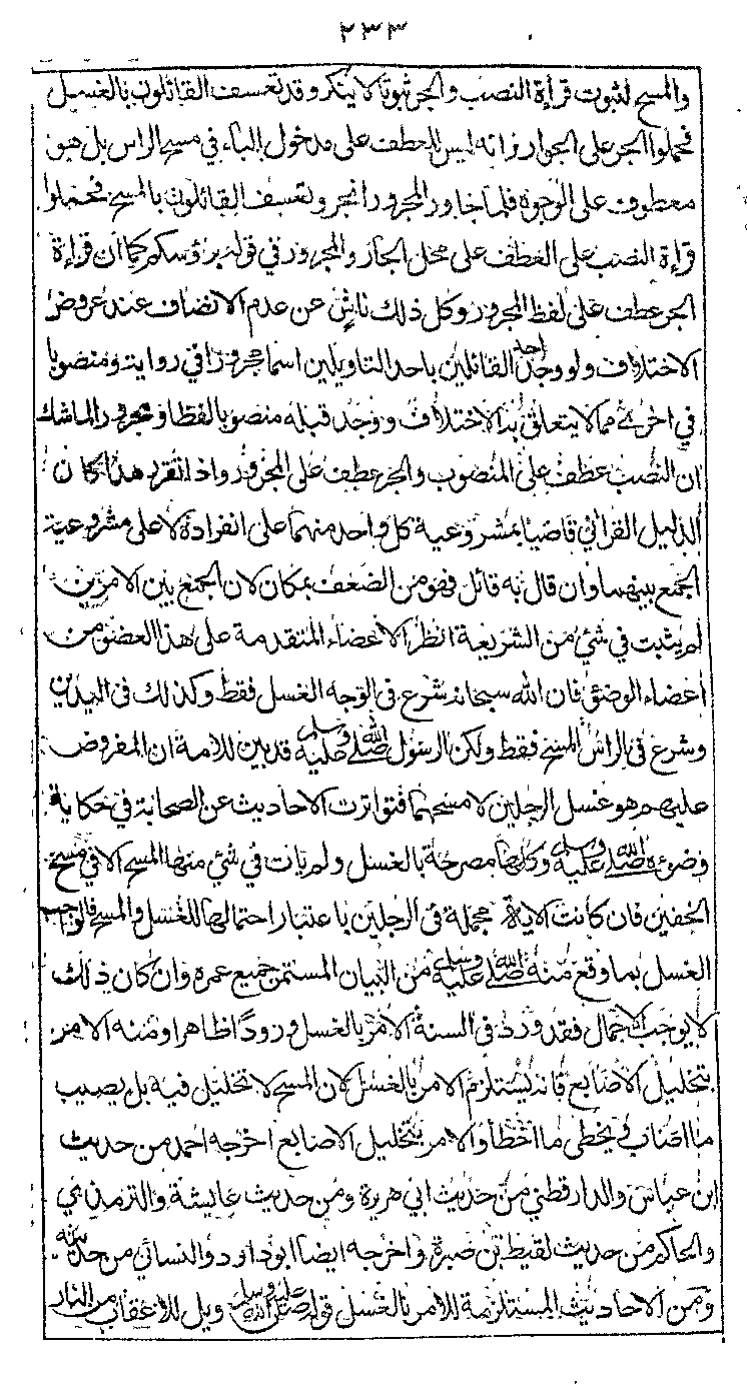 ٢٣٣
والمسح لثبوت قراءة النصب والجر ثبوتا لا ينكر وقد تعسف القائلون بالغسل
فحملوا الجر على الجوار وانه ليس للعطف على مدخول الباء في مسح الراس بل هو
معطوف على الوجوه فلما جاور المجرور انجر وتعسف القائلون بالمسح فحملوا
قراءة النصب على العطف على محل الجار والمجرور في قوله برؤسكم كما ان قراءة
الجر عطف على لفظ المجرور وكل ذلك ناش عن عدم الانصاف عند عروض
الاختلاف ولو وجد احد القائلين باحد التاويلين اسما مجرورا في رواية ومنصوبا
في اخرى مما لا يتعلق به الاختلاف ووجد قبله منصوبا لفظا ومجرورا لما شك
ان النصب عطف على المنصوب والجر عطف على المجرور واذا تقرر هذا كان
الدليل القراني قاضيا بمشروعية كل واحد منهما على انفراده لا على مشروعية
الجمع بينهما وان قال به قائل فهو من الضعف بمكان لان الجمع بين الامرين
لم يثبت في شئ من الشريعة انظر الاعضاء المتقدمة على هذا العضو من
اعضاء الوضوء فان الله سبحانه شرع في الوجه الغسل فقط وكذلك في اليدين
وشرع في الراس المسح فقط ولكن الرسول صلى الله عليه وسلم قد بين للامة ان المفروض
عليهم هو غسل الرجلين لا مسحهما فتواترت الاحاديث عن الصحابة في حكاية
وضوءه صلى الله عليه وسلم وكلها مصرحة بالغسل ولم يات في شئ منها المسح الا في مسح
الخفين فان كانت الاية مجملة في الرجلين باعتبار احتمالها للغسل والمسح فالواجب
الغسل بما وقع منه صلى الله عليه وسلم من البيان المستمر جميع عمره وان كان ذلك
لا يوجب الاجمال فقد ورد في السنة الامر بالغسل ورودا ظاهرا ومنه الامر
بتخليل الاصابع فانه يستلزم الامر بالغسل لان المسح لا تخليل فيه بل يصيب
ما اصاب ويخطى ما اخطأ والامر بتخليل الاصابع اخرجه احمد من حديث
ابن عباس والدارقطني من حديث ابي هريرة ومن حديث عايشة والترمذي
والحاكم من حديث لقيط بن صبرة واخرجه ايضا ابو داود والنسائي من حديثه
ومن الاحاديث المستلزمة للامر بالغسل قوله صلى الله عليه وسلم ويل للاعقاب من النار